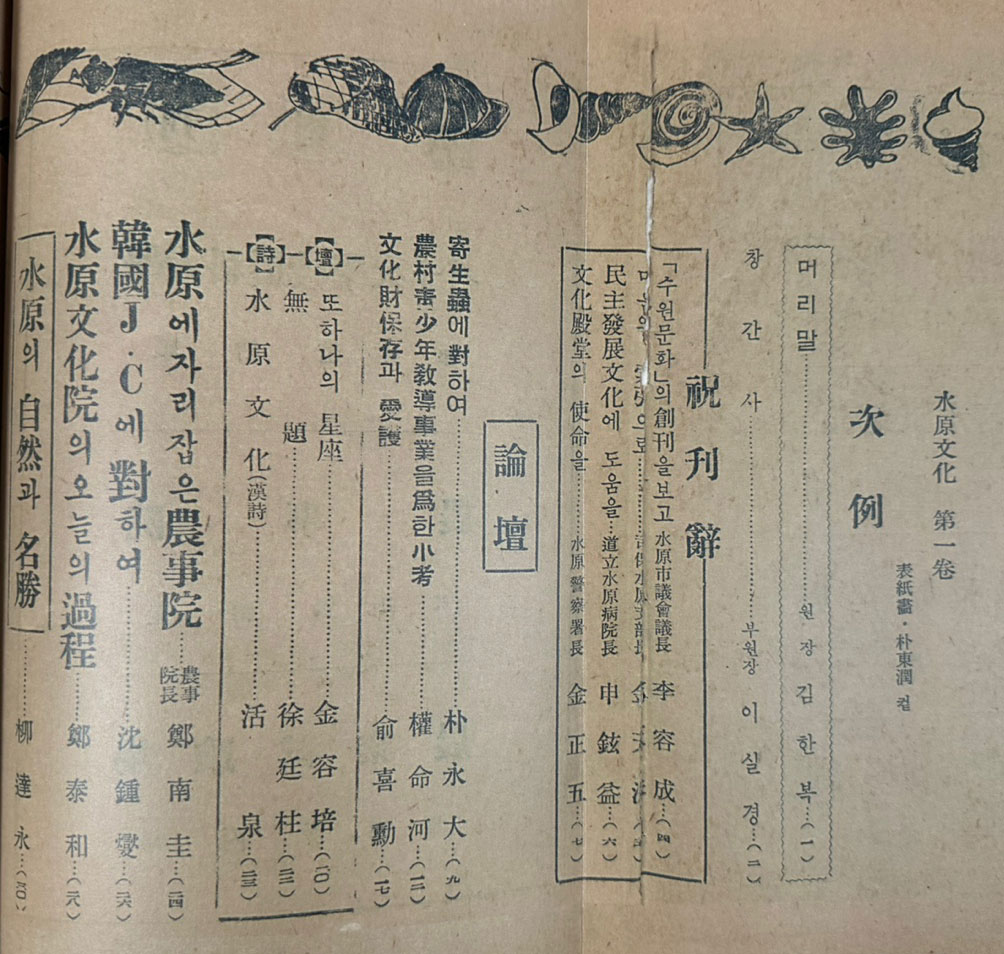 水原文化 第一卷
表紙畵·朴東潤 컽
次例
머리말 원장 김한복 (一)
창간사 부원장 이실경 (二)
祝刊辭
「수원문화」의 創刊을보고 水原市議會議長 李容成 (四)
水原支部長
民主發展文化에 도움을 道立水原病院長 申鉉益 (六)
文化殿堂의 使命을 水原警察署長 金正五 (七)
論壇
寄生蟲에 對하여 朴永大 (九)
農村靑少年敎導事業을爲한小考 權命河 (一二)
文化財保存과 愛護 俞喜勳 (一七)
【詩】【壇】
또하나의 星座 金容培 (二〇)
無題 徐廷柱 (二二)
水原文化(漢詩) 活泉 (二三)
水原에자리잡은農事院 農事院長 鄭南圭 (二四)
韓國J·C에對하여 沈鍾燮 (二六)
水原文化院의오늘의過程 鄭泰和 (二八)
水原의 自然과 名勝 柳達永 (四〇)